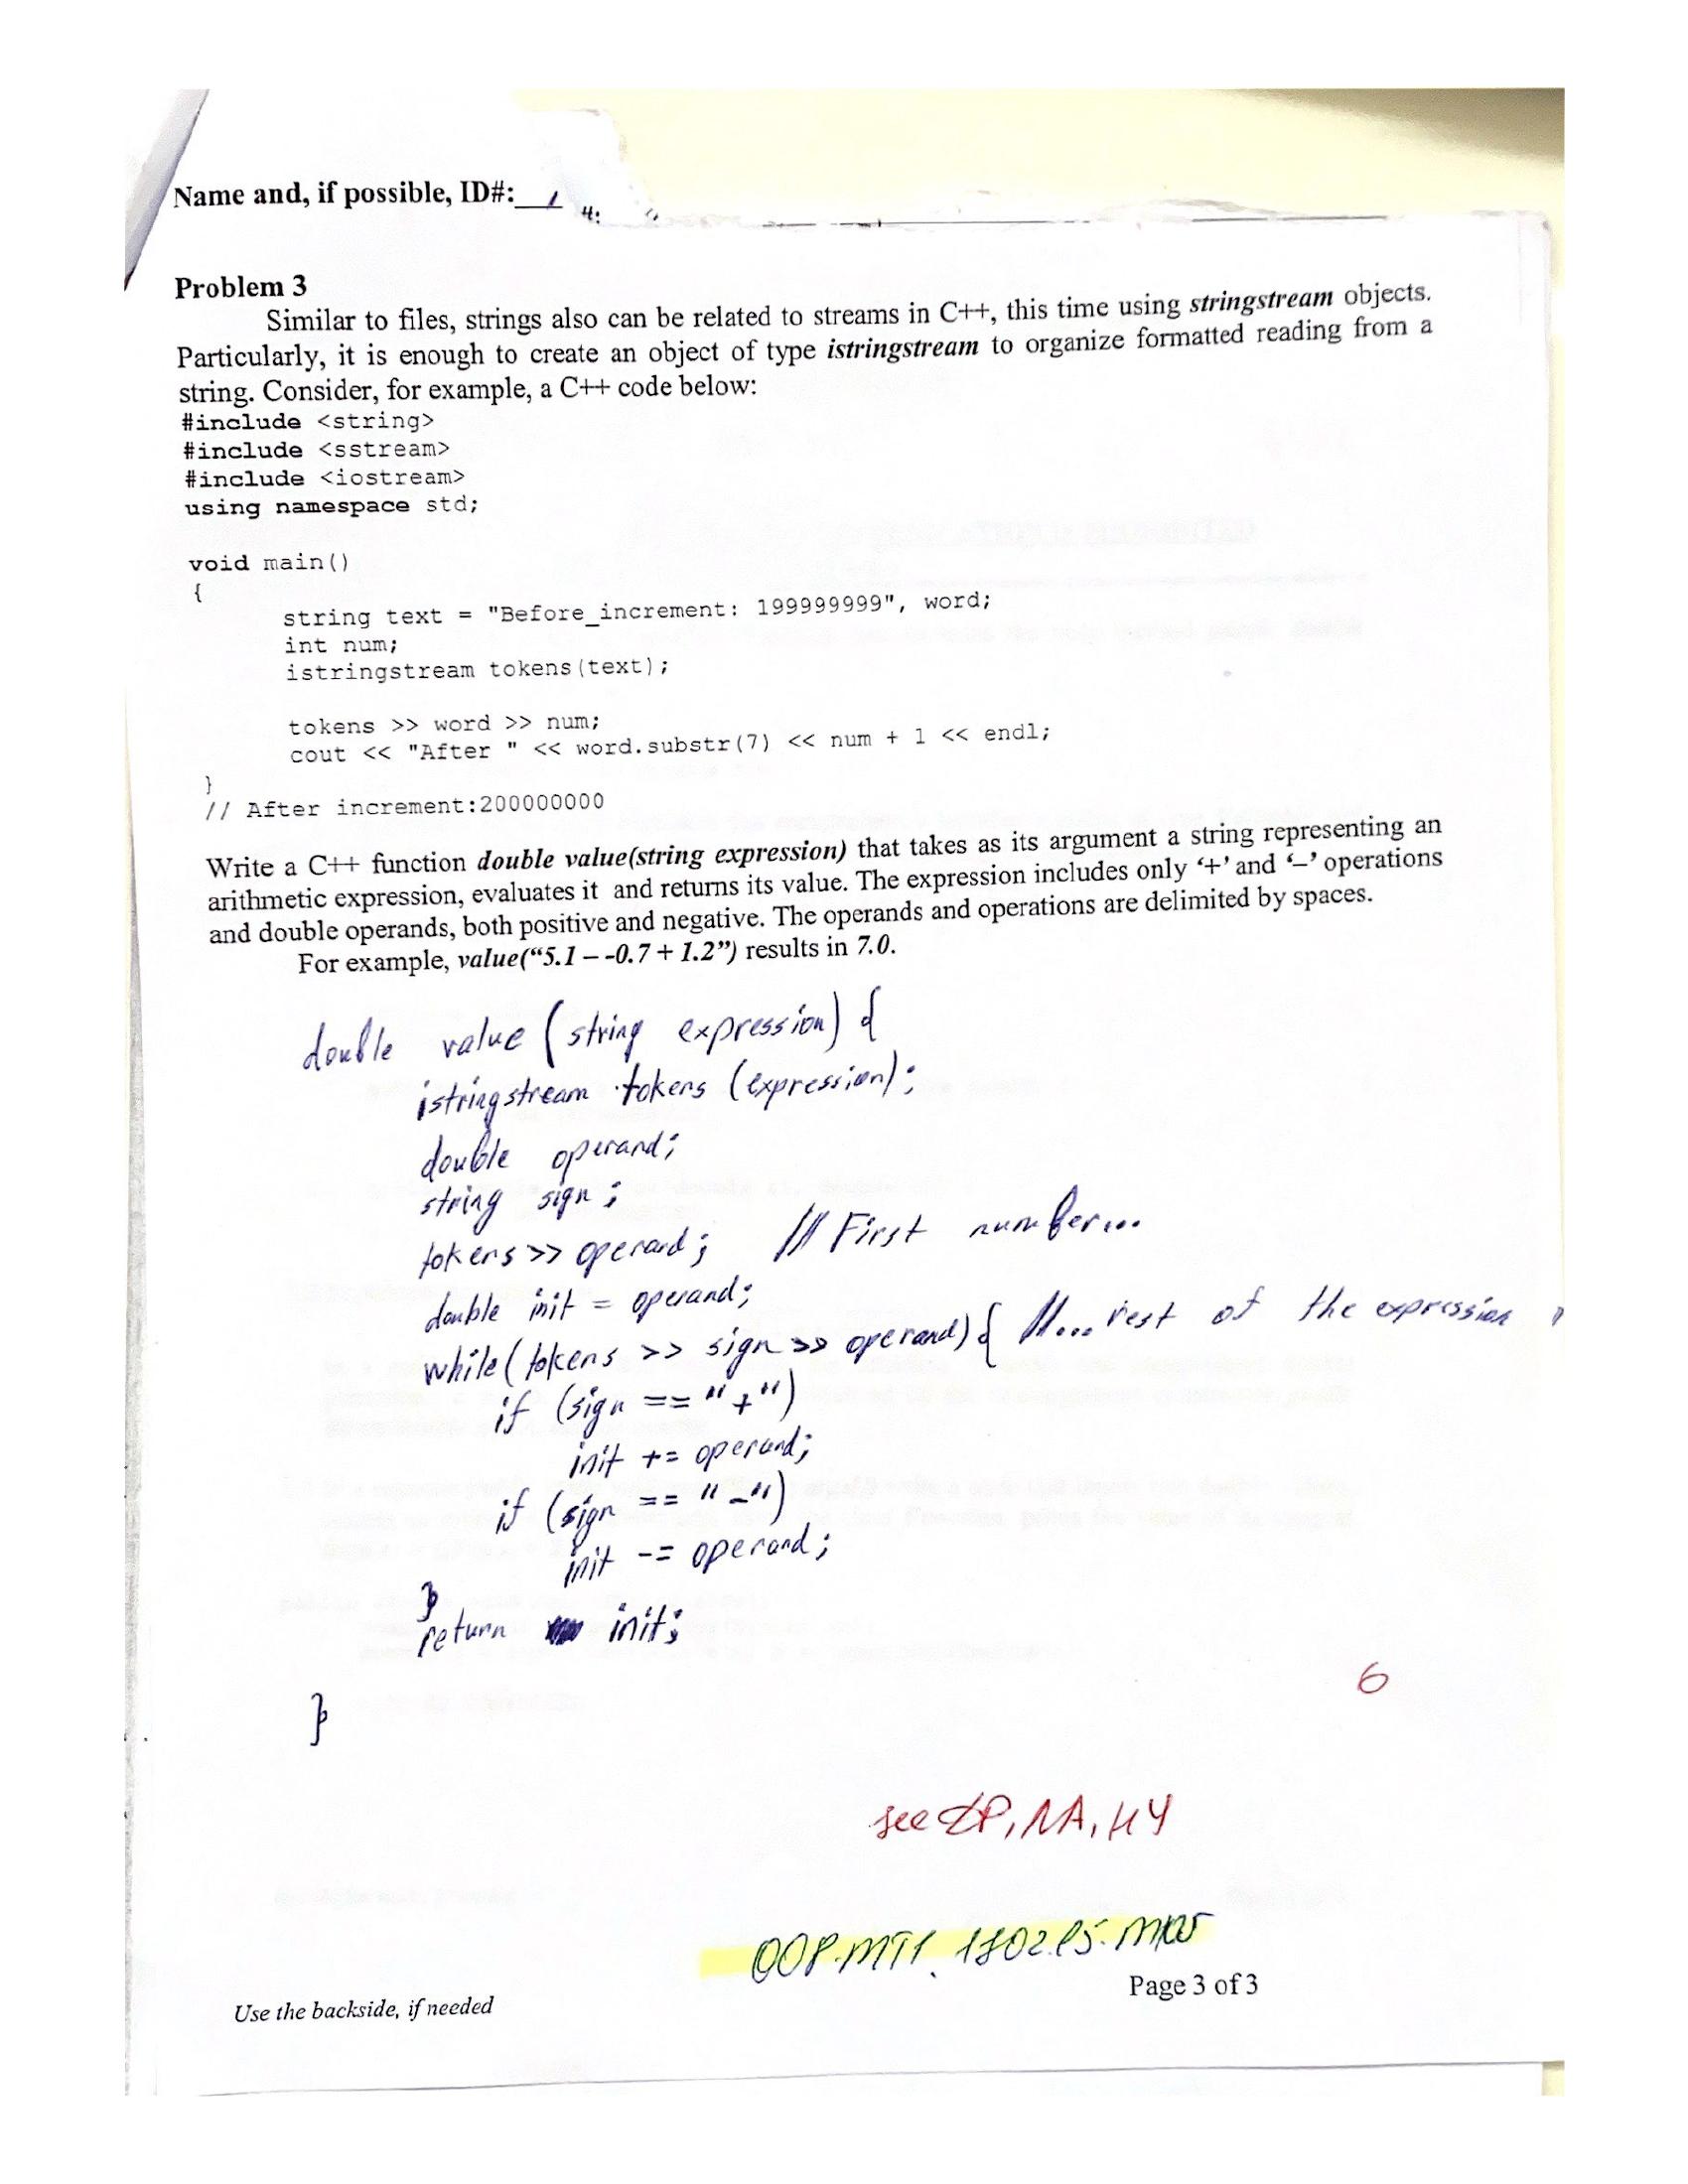 Name and, if possible, ID#:
Problem 3
Similar to files, strings also can be related to streams in C++, this time using stringstream objects.
Particularly, it is enough to create an object of type istringstream to organize formatted reading from a
string. Consider, for example, a C++ code below:
#include <string>
#include <sstream>
#include <iostream>
using namespace std;
void main()
{
string text = "Before_increment: 199999999", word;
int num;
istringstream tokens(text);
tokens >> word >> num;
cout << "After " << word.substr(7) << num + 1 << endl;
}
// After increment:200000000
Write a C++ function double value(string expression) that takes as its argument a string representing an
arithmetic expression, evaluates it and returns its value. The expression includes only ‘+’ and ‘–’ operations
and double operands, both positive and negative. The operands and operations are delimited by spaces.
For example, value(“5.1 – -0.7 + 1.2”) results in 7.0.
double value (string expression) {
istringstream tokens (expression);
double operand;
string sign;
tokens >> operand; // First number...
double init = operand;
while (tokens >> sign >> operand) { //... rest of the expression
if (sign == "+")
init += operand;
if (sign == "-")
init -= operand;
}
return init;
}
6
see
Use the backside, if needed
Page 3 of 3